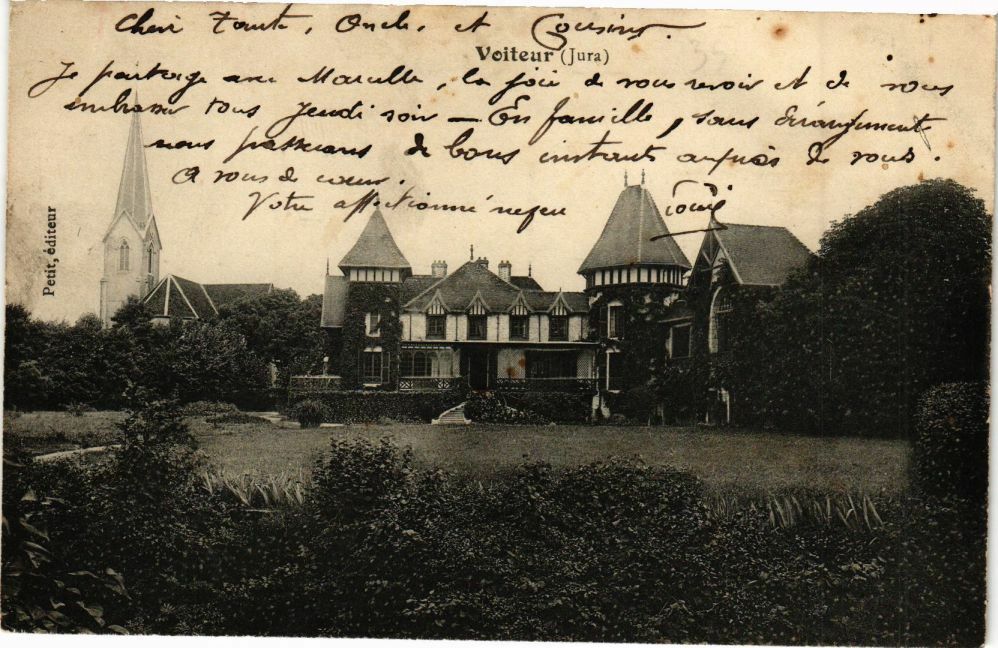 Cher Tante, Oncle, et Cousins.
Voiteur (Jura)
Je partage avec Marcelle, la joie de vous revoir et de vous
embrasser tous Jeudi soir — En famille, sans dérangement
nous passerons de bons instants auprès de vous.
A vous de cœur.
Votre affectionné neveu
Petit, éditeur